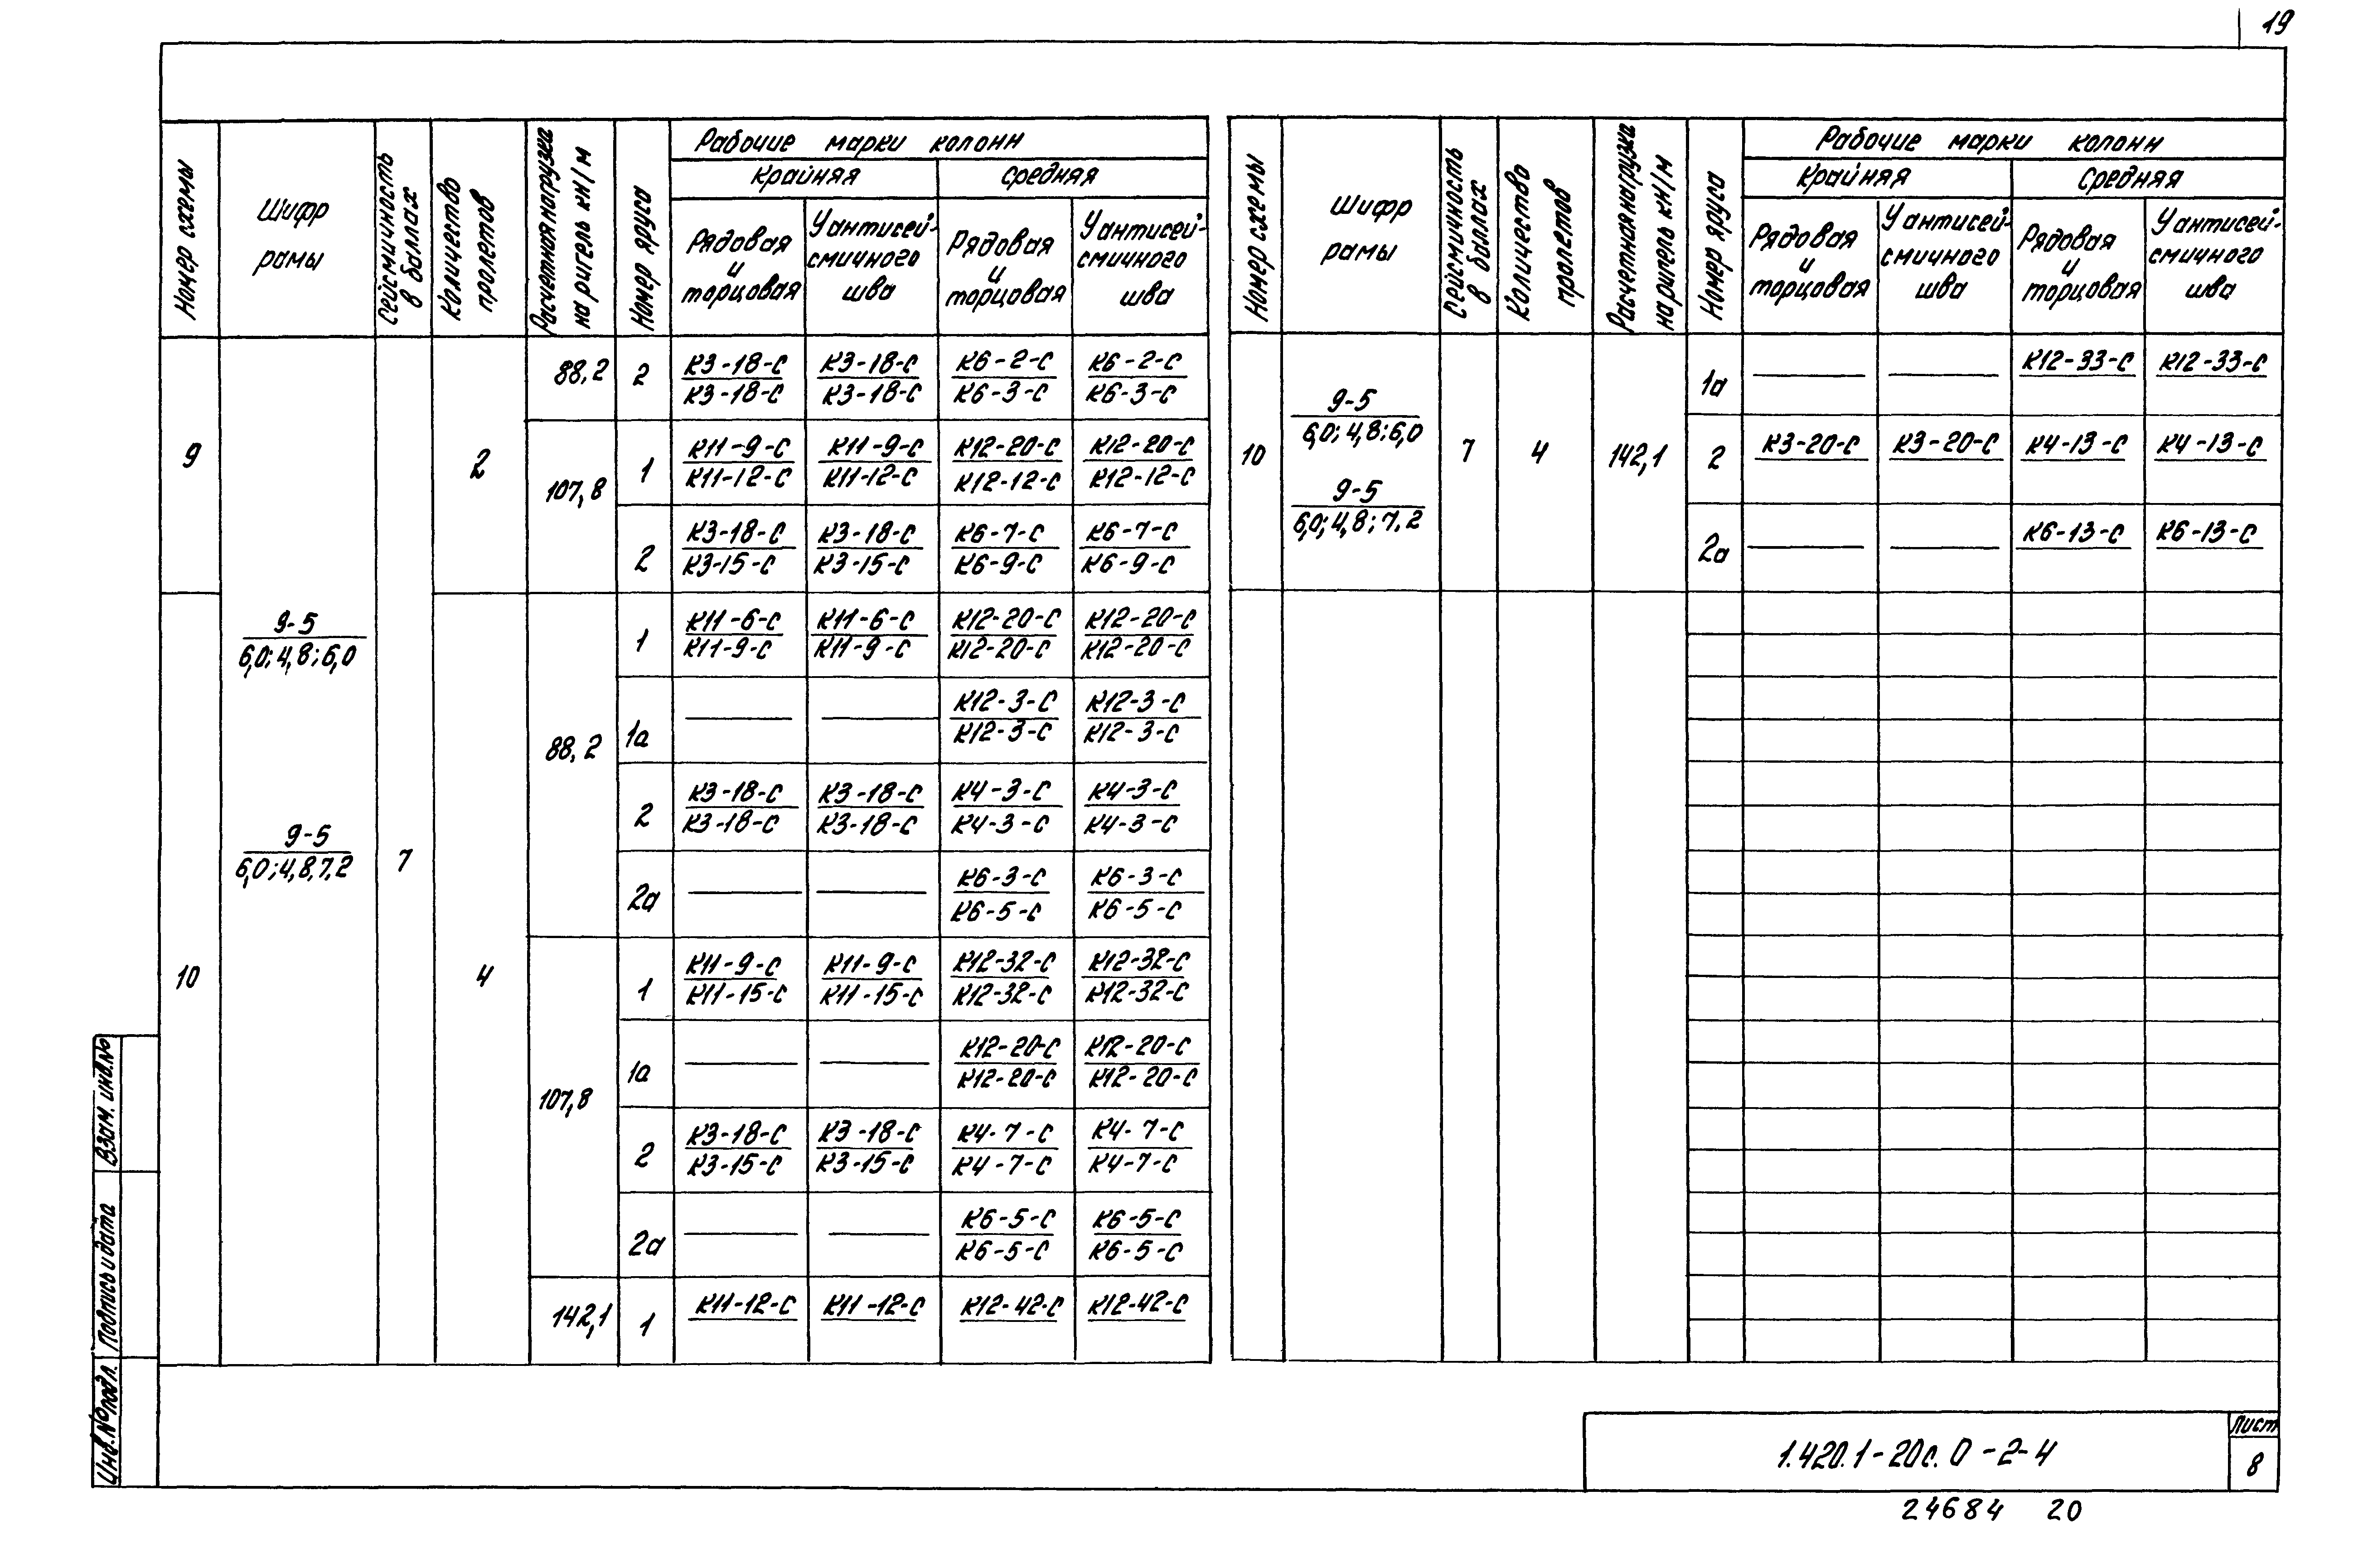 19
Номер схемы
Шифр рамы
Сейсмичность в баллах
Количество пролетов
Расчетная нагрузка на ригель кН/м
Номер яруса
Рабочие марки колонн
Крайняя
Средняя
Рядовая и торцовая
У антисей-смичного шва
Рядовая и торцовая
У антисей-смичного шва
9
2
88,2
2
К3-18-С К3-18-С К6-2-С К6-2-С
К3-18-С К3-18-С К6-3-С К6-3-С
107,8
1
К11-9-С К11-9-С К12-20-С К12-20-С
К11-12-С К11-12-С К12-12-С К12-12-С
2
К3-18-С К3-18-С К6-7-С К6-7-С
К3-15-С К3-15-С К6-9-С К6-9-С
9-5
6,0; 4,8; 6,0
9-5
6,0; 4,8, 7,2
7
10
4
88,2
1
К11-6-С К11-6-С К12-20-С К12-20-С
К11-9-С К11-9-С К12-20-С К12-20-С
1а
К12-3-С К12-3-С
К12-3-С К12-3-С
2
К3-18-С К3-18-С К4-3-С К4-3-С
К3-18-С К3-18-С К4-3-С К4-3-С
2а
К6-3-С К6-3-С
К6-5-С К6-5-С
107,8
1
К11-9-С К11-9-С К12-32-С К12-32-С
К11-15-С К11-15-С К12-32-С К12-32-С
1а
К12-20-С К12-20-С
К12-20-С К12-20-С
2
К3-18-С К3-18-С К4-7-С К4-7-С
К3-15-С К3-15-С К4-7-С К4-7-С
2а
К6-5-С К6-5-С
К6-5-С К6-5-С
142,1
1
К11-12-С К11-12-С К12-42-С К12-42-С
Номер схемы
Шифр рамы
Сейсмичность в баллах
Количество пролетов
Расчетная нагрузка на ригель кН/м
Номер яруса
Рабочие марки колонн
Крайняя
Средняя
Рядовая и торцовая
У антисей-смичного шва
Рядовая и торцовая
У антисей-смичного шва
10
9-5
6,0; 4,8; 6,0
9-5
6,0; 4,8; 7,2
7
4
142,1
1а
К12-33-С К12-33-С
2
К3-20-С К3-20-С К4-13-С К4-13-С
2а
К6-13-С К6-13-С
Взам. инв. №
Подпись и дата
Инв. № подл.
1.420.1-20с.0-2-4
Лист
8
24684 20